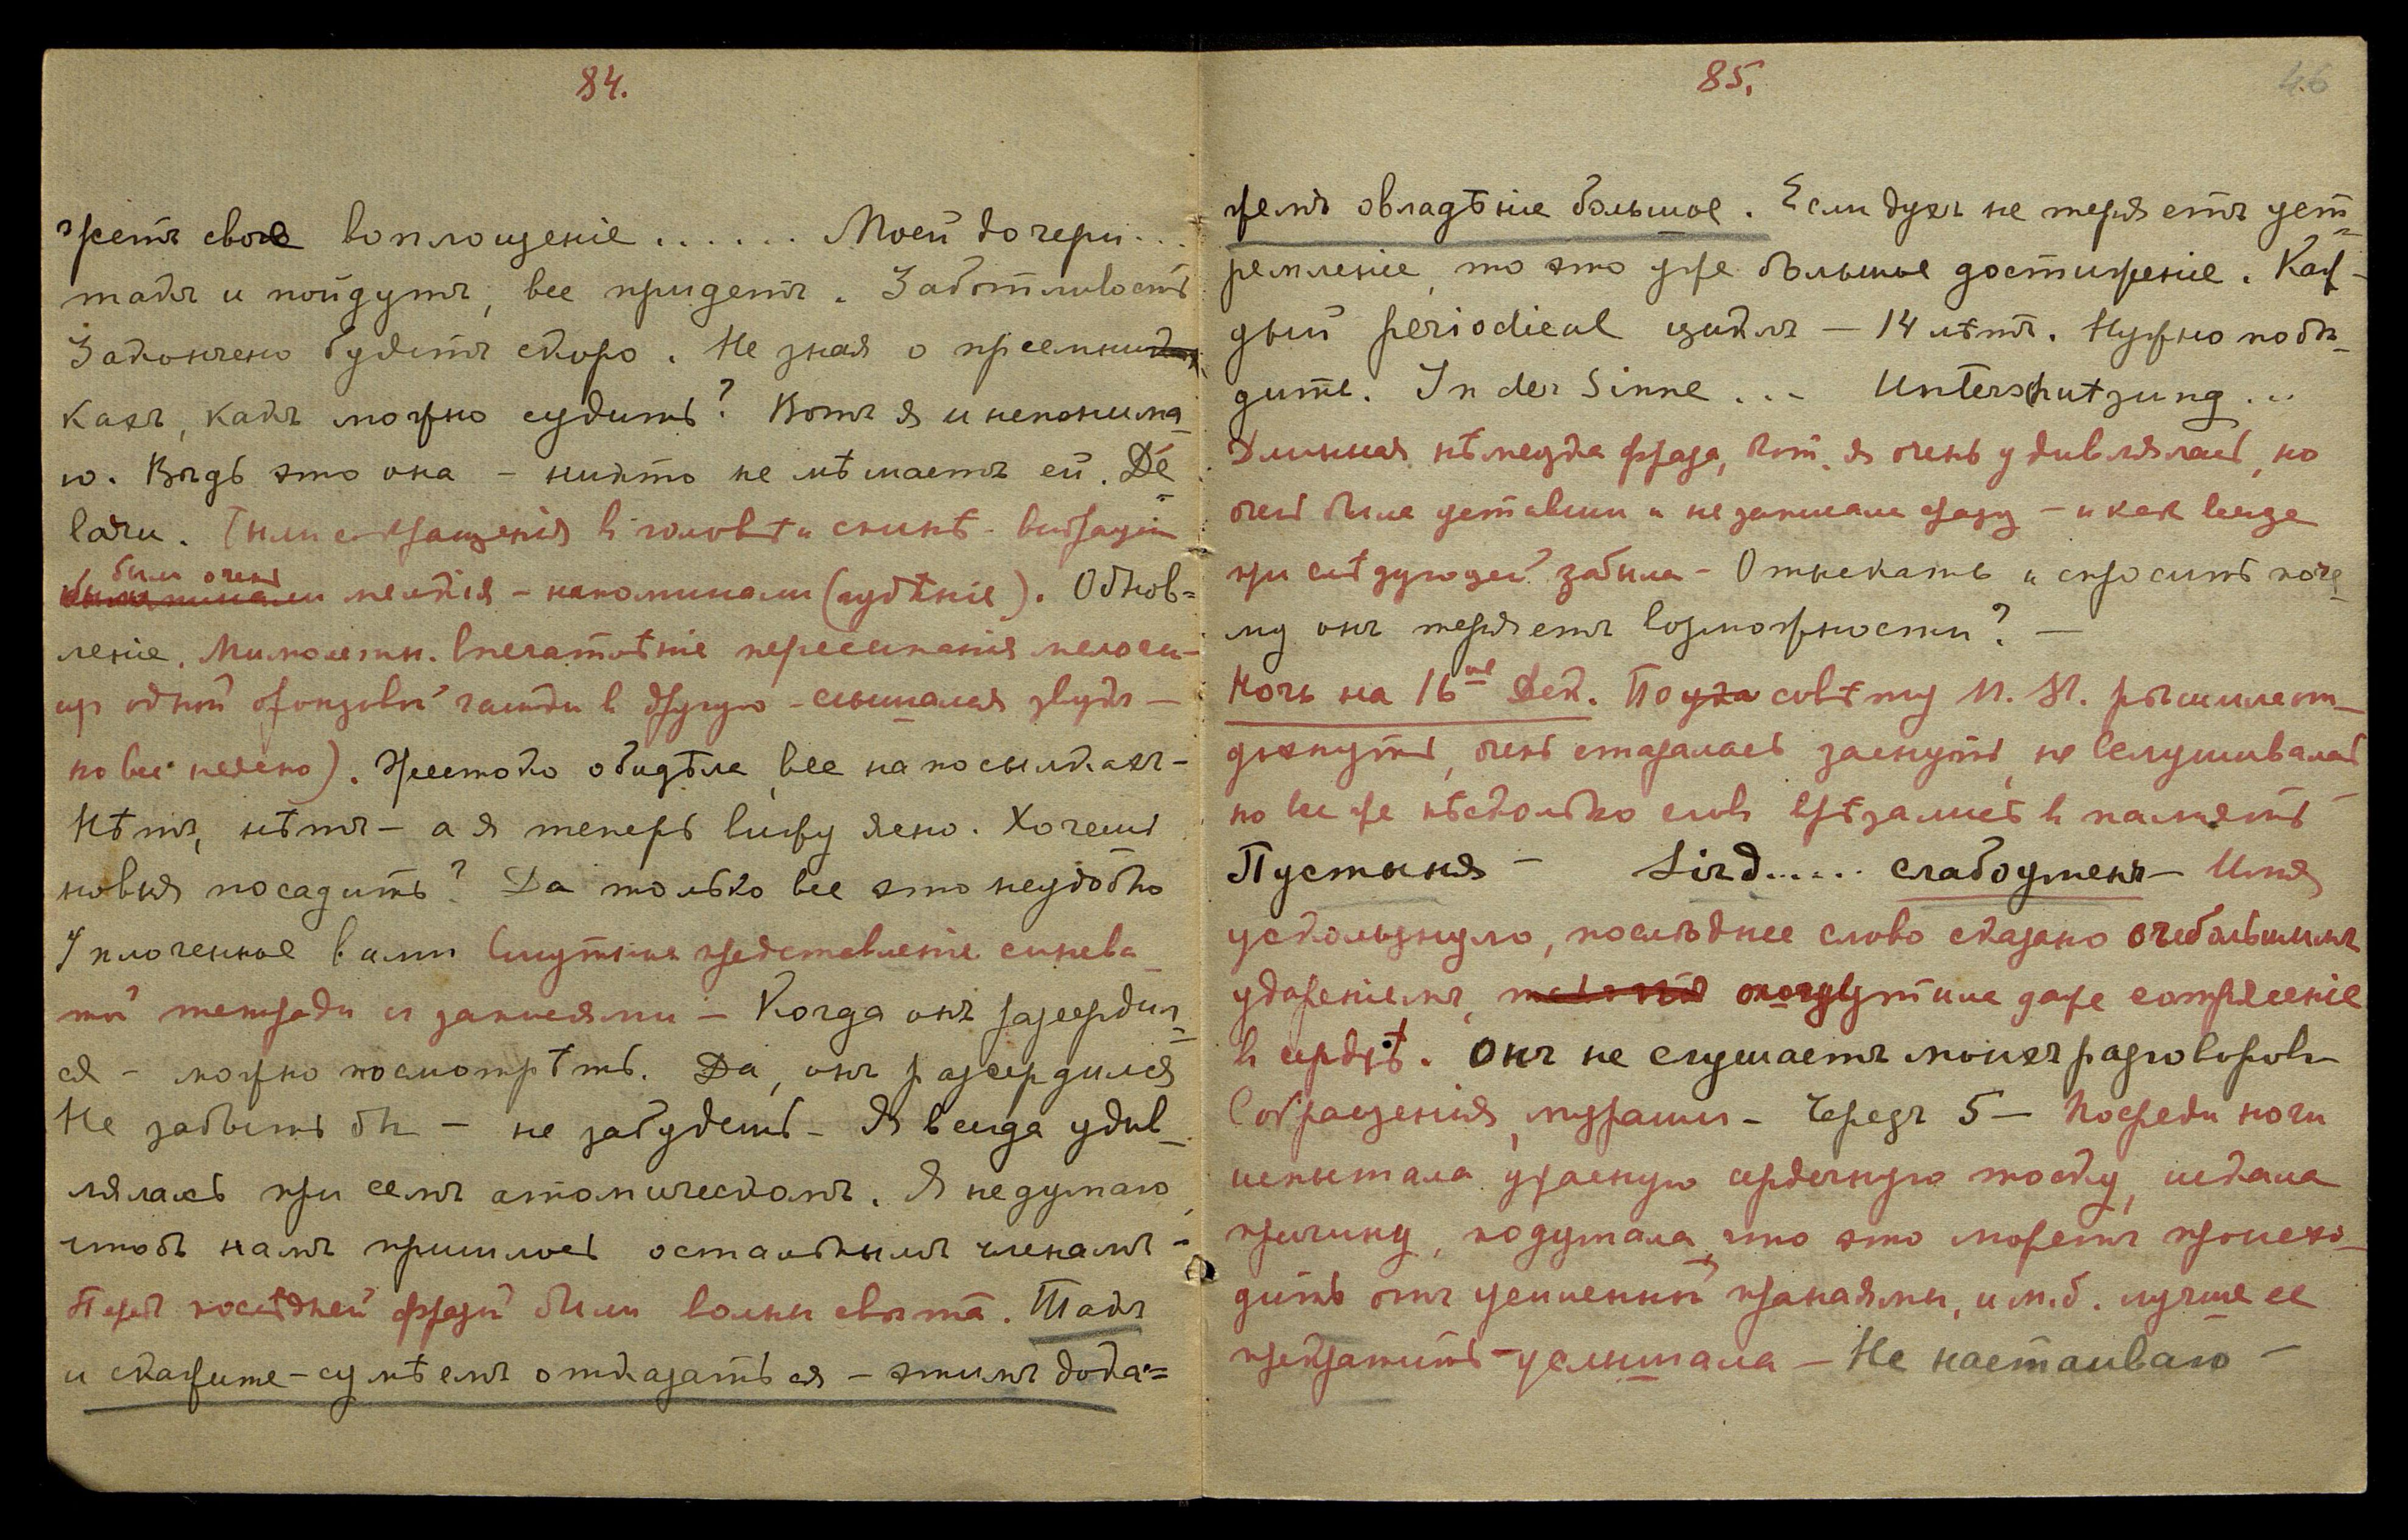 84.
жетъ свое воплощеніе ...... Моей дочери...
такъ и пойдутъ, все придетъ. Заботливость
Закончено будетъ скоро. Не зная о преемни
кахъ, какъ можно судить? Вотъ я и непонима
ю. Вѣдь это она – никто не мѣшаетъ ей. Де
вачи. (или сокращенія в головѣ и спинѣ - вибраціи
были очень
мелкія – напоминали (гудѣніе). Обнов=
леніе. Мимолетн. впечатлѣніе пересыпанія
из одной бронзовой чашки в другую – слышался звукъ –
но все неясно). Жестоко обидѣла, все на посылкахъ –
Нѣтъ, нѣтъ – а я теперь вижу ясно. Хочешь
новыя посадить? Да только все это неудобно
Уплоченное вами Смутныя представленіе синева
той тетради съ записями – Когда онъ разсердил=
ся – можно посмотрѣть. Да, онъ разсердился
Не забыть бы – не забудешь – Я всегда удив
лялась при семъ атомическомъ. Я не думаю,
чтобъ намъ пришлось остальнымъ членамъ –
Перед послѣдней фразой были волны свѣта. Такъ
и скажите – сумѣемъ отказаться – этимъ дока=
85.
46
жемъ овладѣніе большое. Если духъ не теряетъ уст=
ремленіе, то это уже большое достиженіе. Каж-
дый periodical циклъ – 14 лѣтъ. Нужно побѣ-
дить. In der Sinne ... Unterschutzung ...
Длинная нѣмецка фраза, кот. я очень удивлялась, но
очень была уставши и не записала фразу – и как всегда
при слѣдующей забыла – Отыскать и спросить поче
му онъ теряетъ возможности? –
Ночь на 16ое Дек. По совѣту М. М. рѣшила от-
дохнуть, очень старалась заснуть, не вслушивалась
но все же нѣсколько слов врѣзались в память –
Пустыня – Lird..... слабоуменъ – Имя
ускользнуло, послѣднее слово сказано очень большимъ
удареніемъ, почувствовала даже сотрясеніе
в сердцѣ. Онъ не слушаетъ моихъ разговоровъ
Сокращенія, мураши – Черезъ 5 – Посреди ночи
испытала ужасную сердечную тоску, искала
причину, подумала, что это можетъ происхо-
дить отъ усиленной пранаямы, и м.б. лучше ее
прекратить – услышала – Не настаиваю –